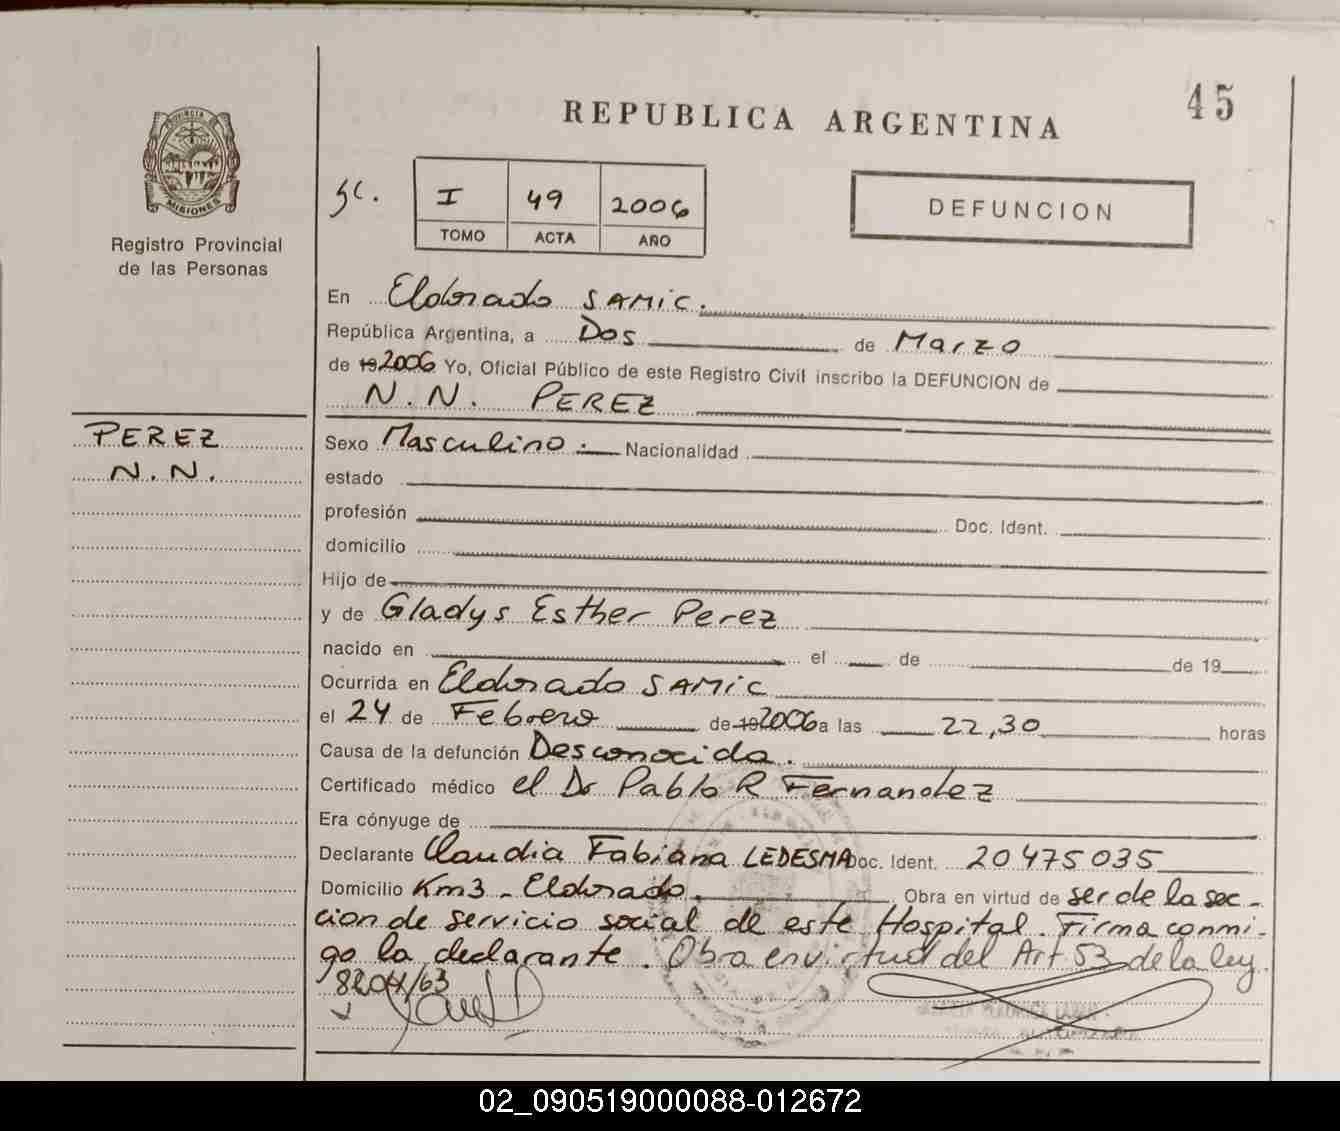 45
REPUBLICA ARGENTINA
PROVINCIA DE
MISIONES
Registro Provincial
de las Personas
I 49 2006
TOMO ACTA AÑO
DEFUNCION
En Eldorado SAMIC.
República Argentina, a Dos de Marzo
de 19 2006 Yo, Oficial Público de este Registro Civil inscribo la DEFUNCION de
N.N. PEREZ
PEREZ
N.N.
Sexo Masculino. Nacionalidad
estado
profesión Doc. Ident.
domicilio
Hijo de
y de Gladys Esther Perez
nacido en el de de 19
Ocurrida en Eldorado SAMIC
el 24 de Febrero de 19 2006 a las 22,30 horas
Causa de la defunción Desconocida.
Certificado médico el Dr Pablo R Fernandez
Era cónyuge de
Declarante Claudia Fabiana LEDESMA Doc. Ident. 20475035
Domicilio Km3 - Eldorado. Obra en virtud de ser de la sec-
cion de servicio social de este Hospital. Firma conmi-
go la declarante. Obra en virtud del Art 53 de la ley
8204/63
02_090519000088-012672